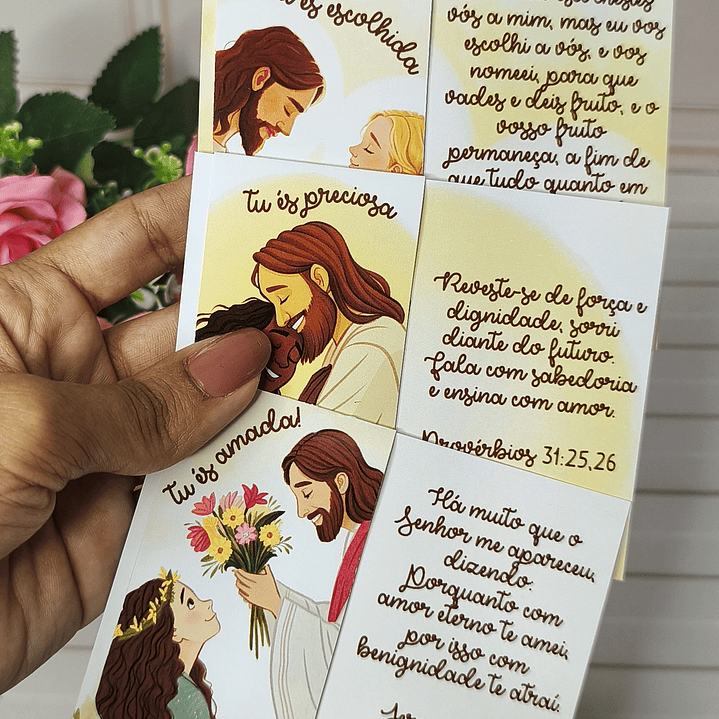 és escolhida
vós a mim, mas eu vos
escolhi a vós, e vos
nomeei, para que
vades e deis fruto, e o
vosso fruto
permaneça, a fim de
que tudo quanto em
Tu és preciosa
Reveste-se de força e
dignidade, sorri
diante do futuro.
Fala com sabedoria
e ensina com amor.
Provérbios 31:25,26
Tu és amada!
Há muito que o
Senhor me apareceu,
dizendo:
Porquanto com
amor eterno te amei,
por isso com
benignidade te atraí.